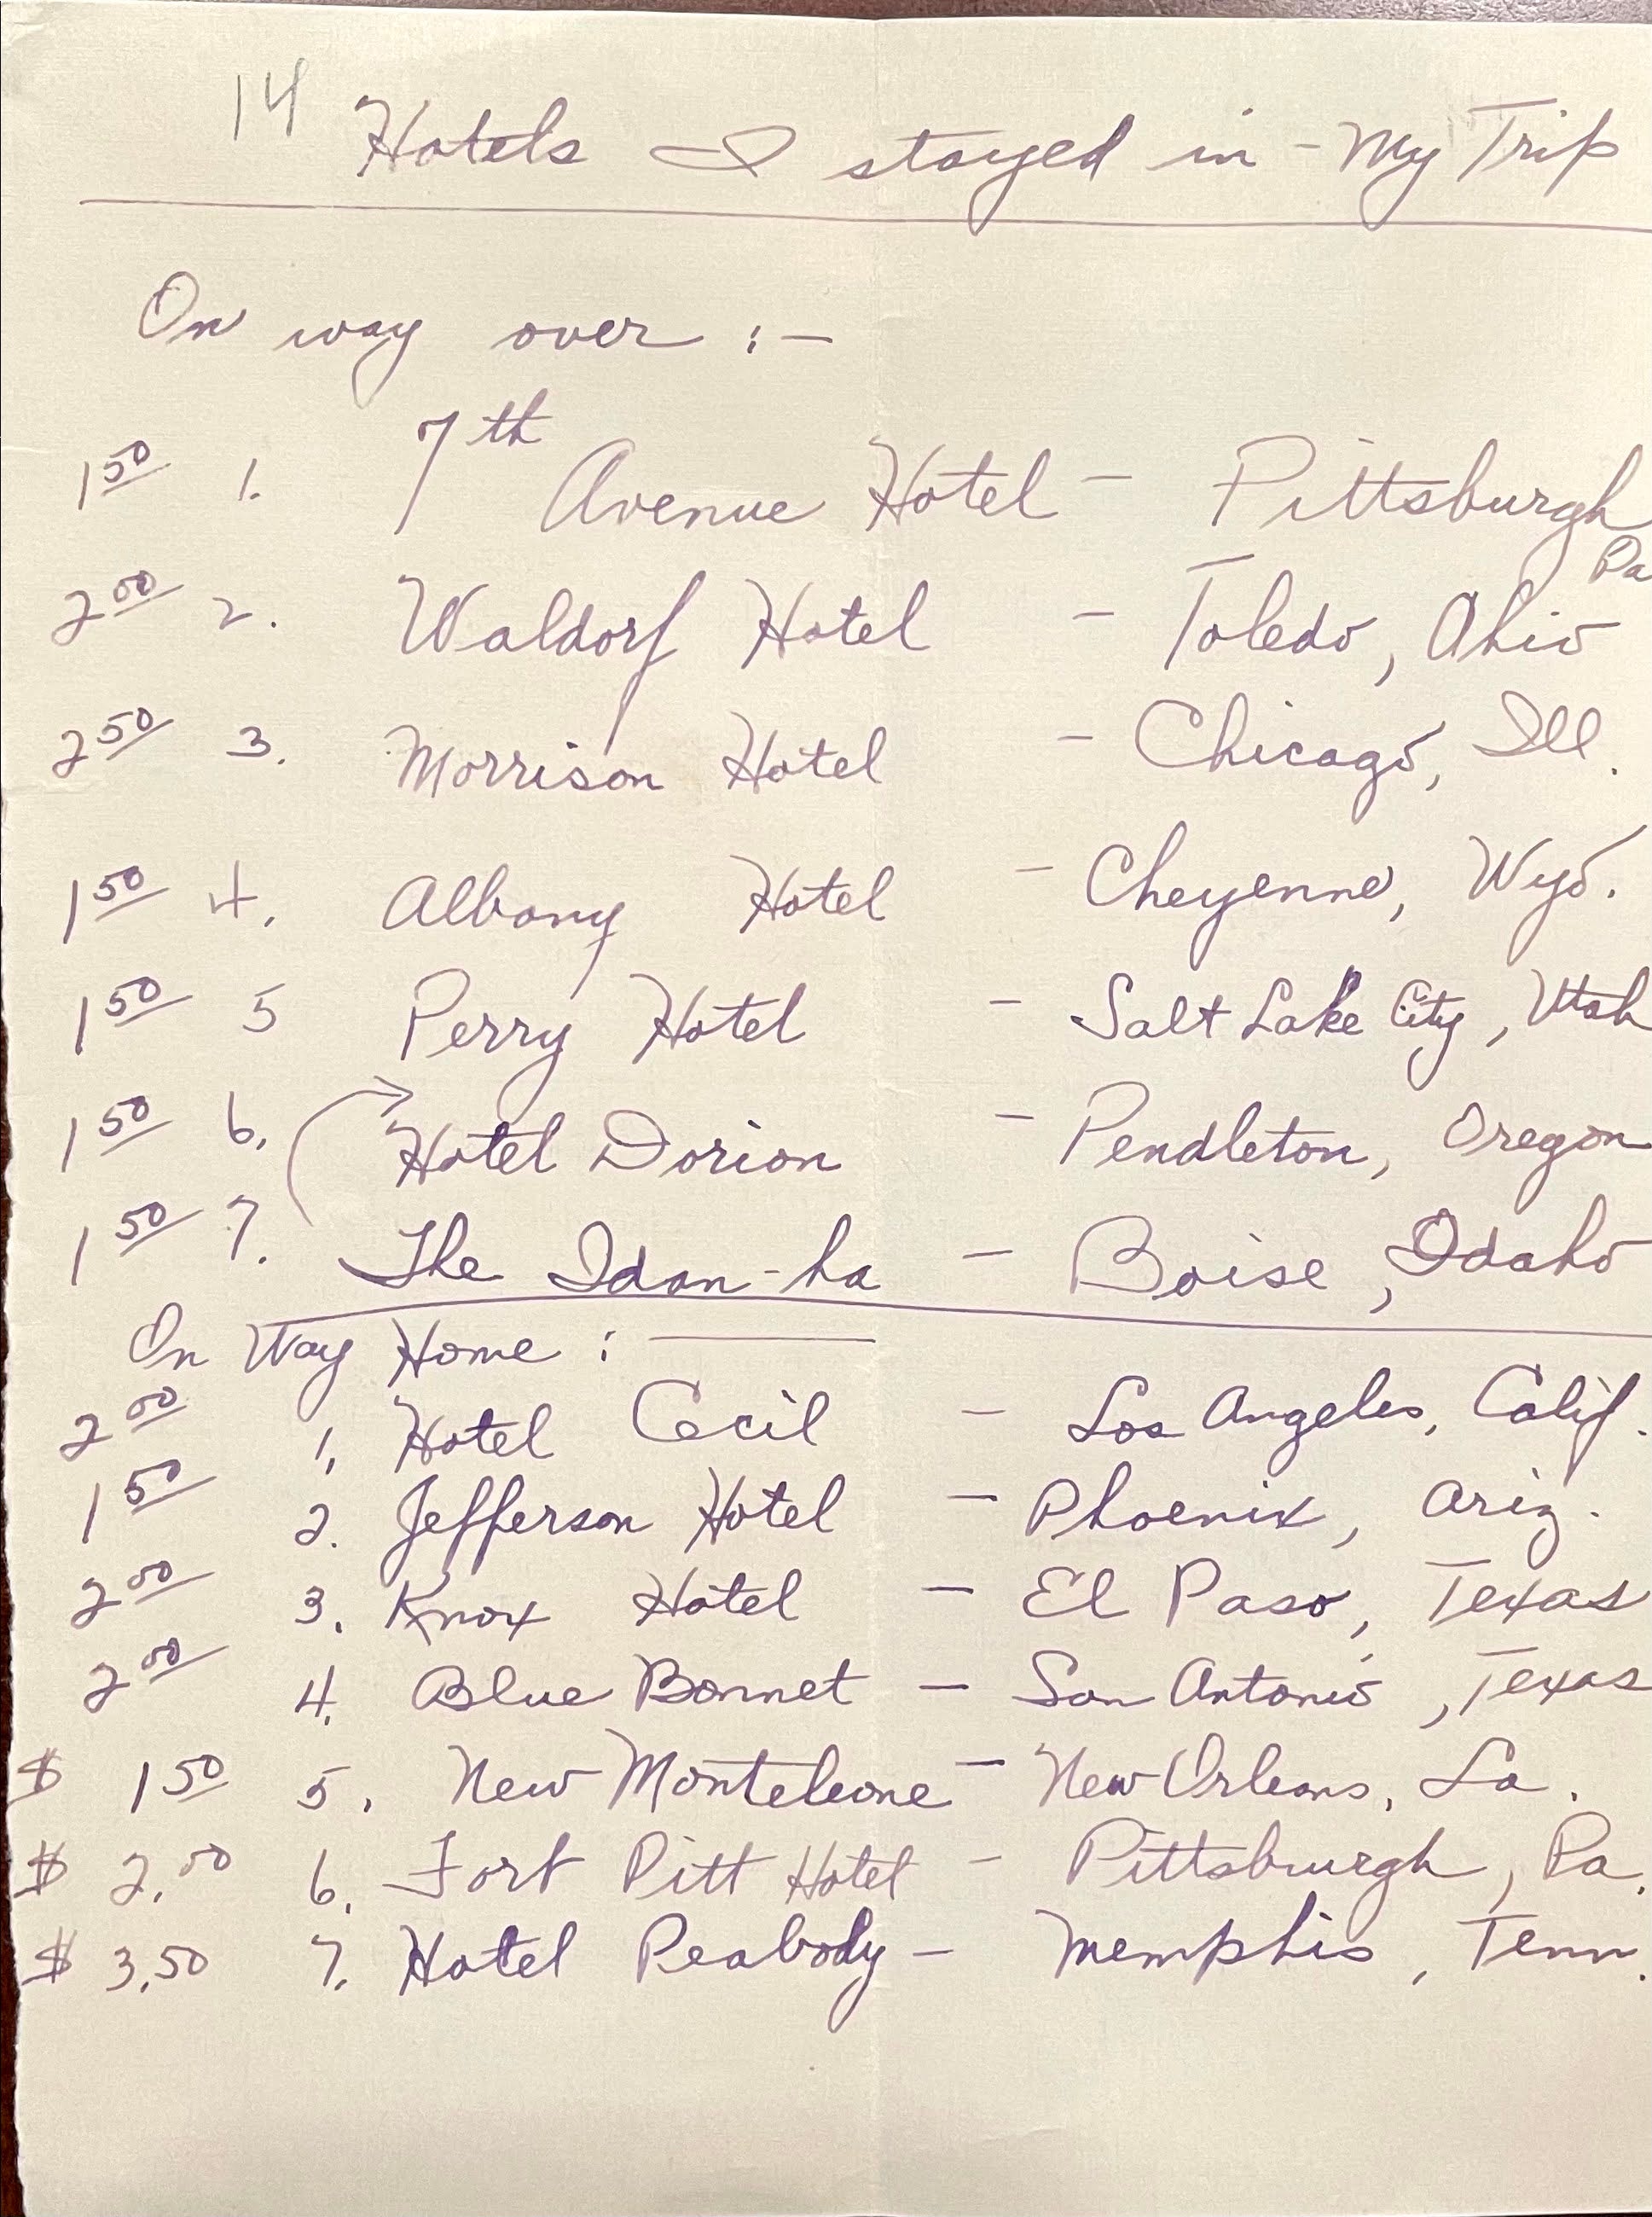 14 Hotels I stayed in - My Trip
On way over :-
1 50 1. 7th Avenue Hotel - Pittsburgh Pa
2 00 2. Waldorf Hotel - Toledo, Ohio
2 50 3. Morrison Hotel - Chicago, Ill.
1 50 4. Albany Hotel - Cheyenne, Wyo.
1 50 5 Perry Hotel - Salt Lake City, Utah
1 50 6. Hotel Dorion - Pendleton, Oregon
1 50 7. The Idan-ha - Boise, Idaho
On Way Home :
2 00 1. Hotel Cecil - Los Angeles, Calif.
1 50 2. Jefferson Hotel - Phoenix, Ariz.
2 00 3. Knox Hotel - El Paso, Texas
2 00 4. Blue Bonnet - San Antonio, Texas
$ 1 50 5. New Monteleone - New Orleans, La.
$ 2.00 6. Fort Pitt Hotel - Pittsburgh, Pa.
$ 3.50 7. Hotel Peabody - Memphis, Tenn.